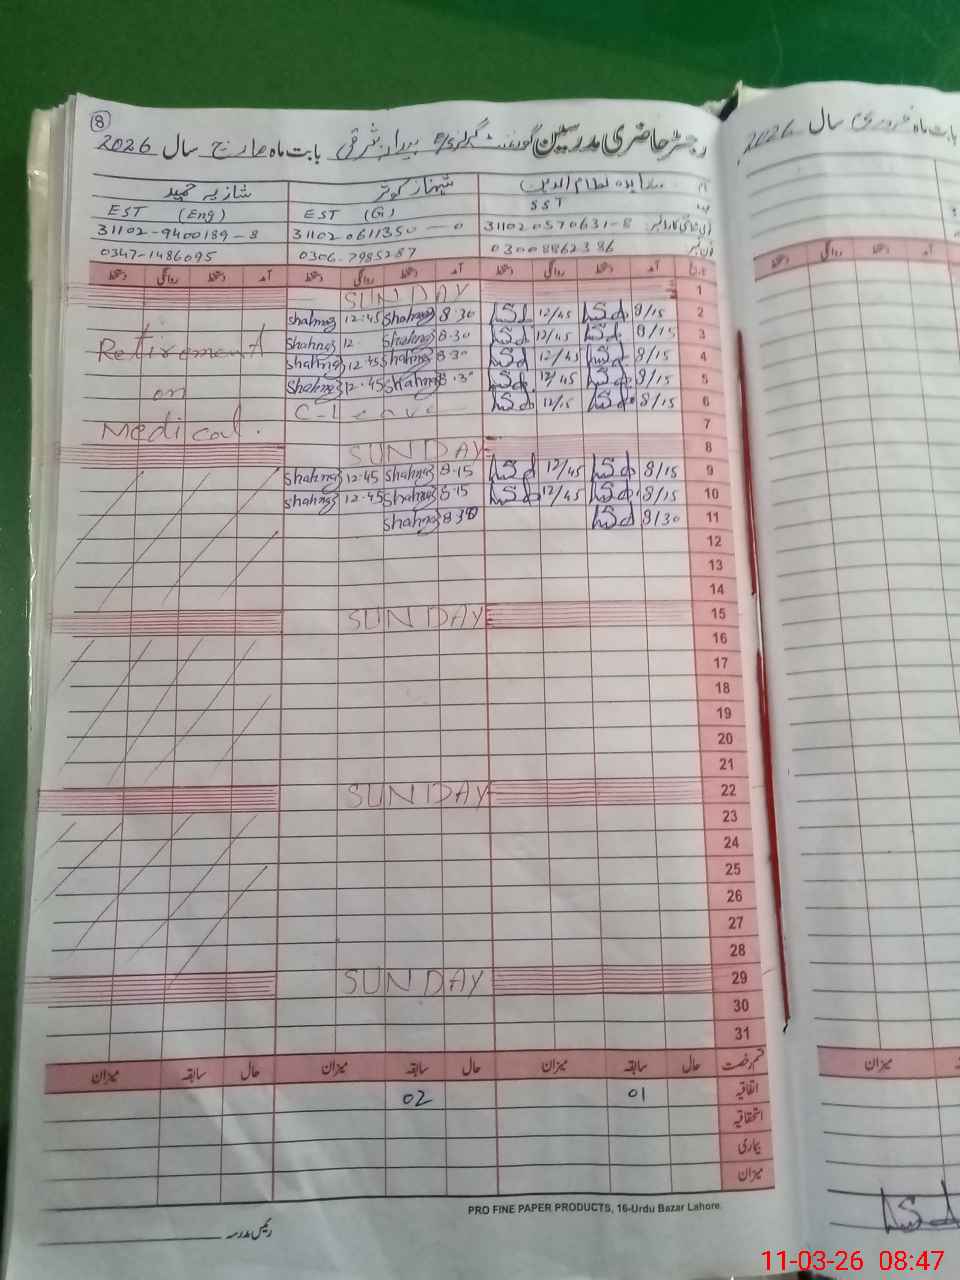 8
رجسٹر حاضری مدرسین گورنمنٹ گرلز بابت ماہ مارچ سال 2026
شہناز کوثر شازیہ حمید
SST EST (G) EST (Eng)
31102 0570631-8 31102 0611350-0 31102-9400189-8
03008862386 0306-7985287 0347-1486095
تاریخ آمد دستخط روانگی دستخط آمد دستخط روانگی دستخط آمد دستخط روانگی دستخط
1 SUNDAY
2 8/15 12/45 8.30 Shahnaz 12.45 Shahnaz
3 8/15 12/45 8.30 Shahnaz 12. Shahnaz
Retirement
4 8/15 12/45 8.30 Shahnaz 12.45 Shahnaz
5 8/15 12/45 8.30 Shahnaz 12.45 Shahnaz
on
6 8/15 12/15 C-Leave
7
Medical.
8 SUNDAY
9 8/15 12/45 8.15 Shahnaz 12.45 Shahnaz
10 8/15 12/45 8.15 Shahnaz 12.45 Shahnaz
11 8/30 8.30 Shahnaz
12
13
14
15 SUNDAY
16
17
18
19
20
21
22 SUNDAY
23
24
25
26
27
28
29 SUNDAY
30
31
قسم رخصت حال سابقہ میزان حال سابقہ میزان حال سابقہ میزان
اتفاقیہ 01 02
استحقاقیہ
بیماری
میزان
PRO FINE PAPER PRODUCTS, 16-Urdu Bazar Lahore.
رئیس مدرسہ
بابت ماہ فروری سال 2026
آمد دستخط روانگی دستخط
میزان
11-03-26 08:47